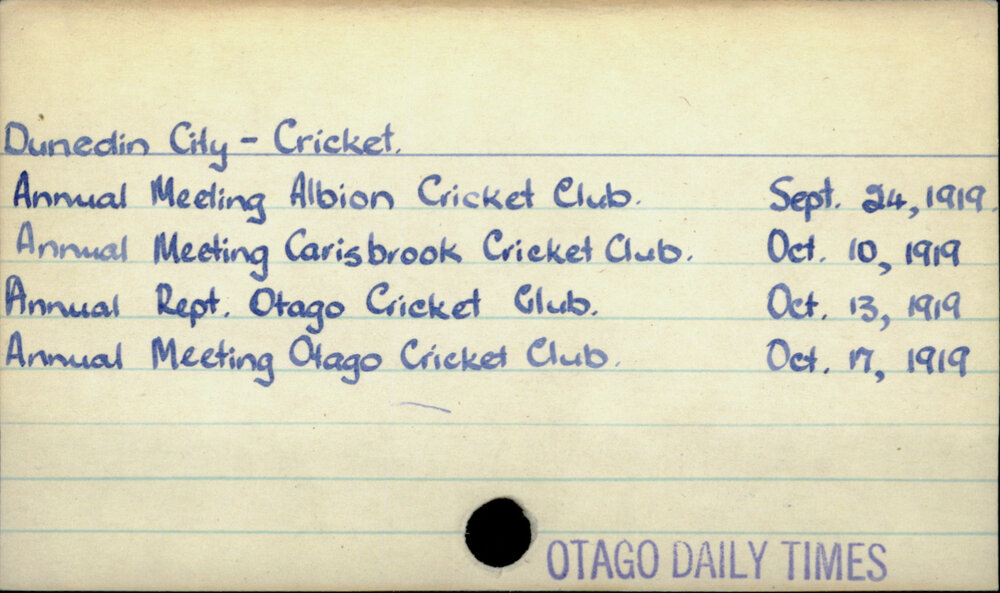 Dunedin City - Cricket.
Annual Meeting Albion Cricket Club. Sept. 24, 1919.
Annual Meeting Carisbrook Cricket Club. Oct. 10, 1919
Annual Rept. Otago Cricket Club. Oct. 13, 1919
Annual Meeting Otago Cricket Club. Oct. 17, 1919
OTAGO DAILY TIMES